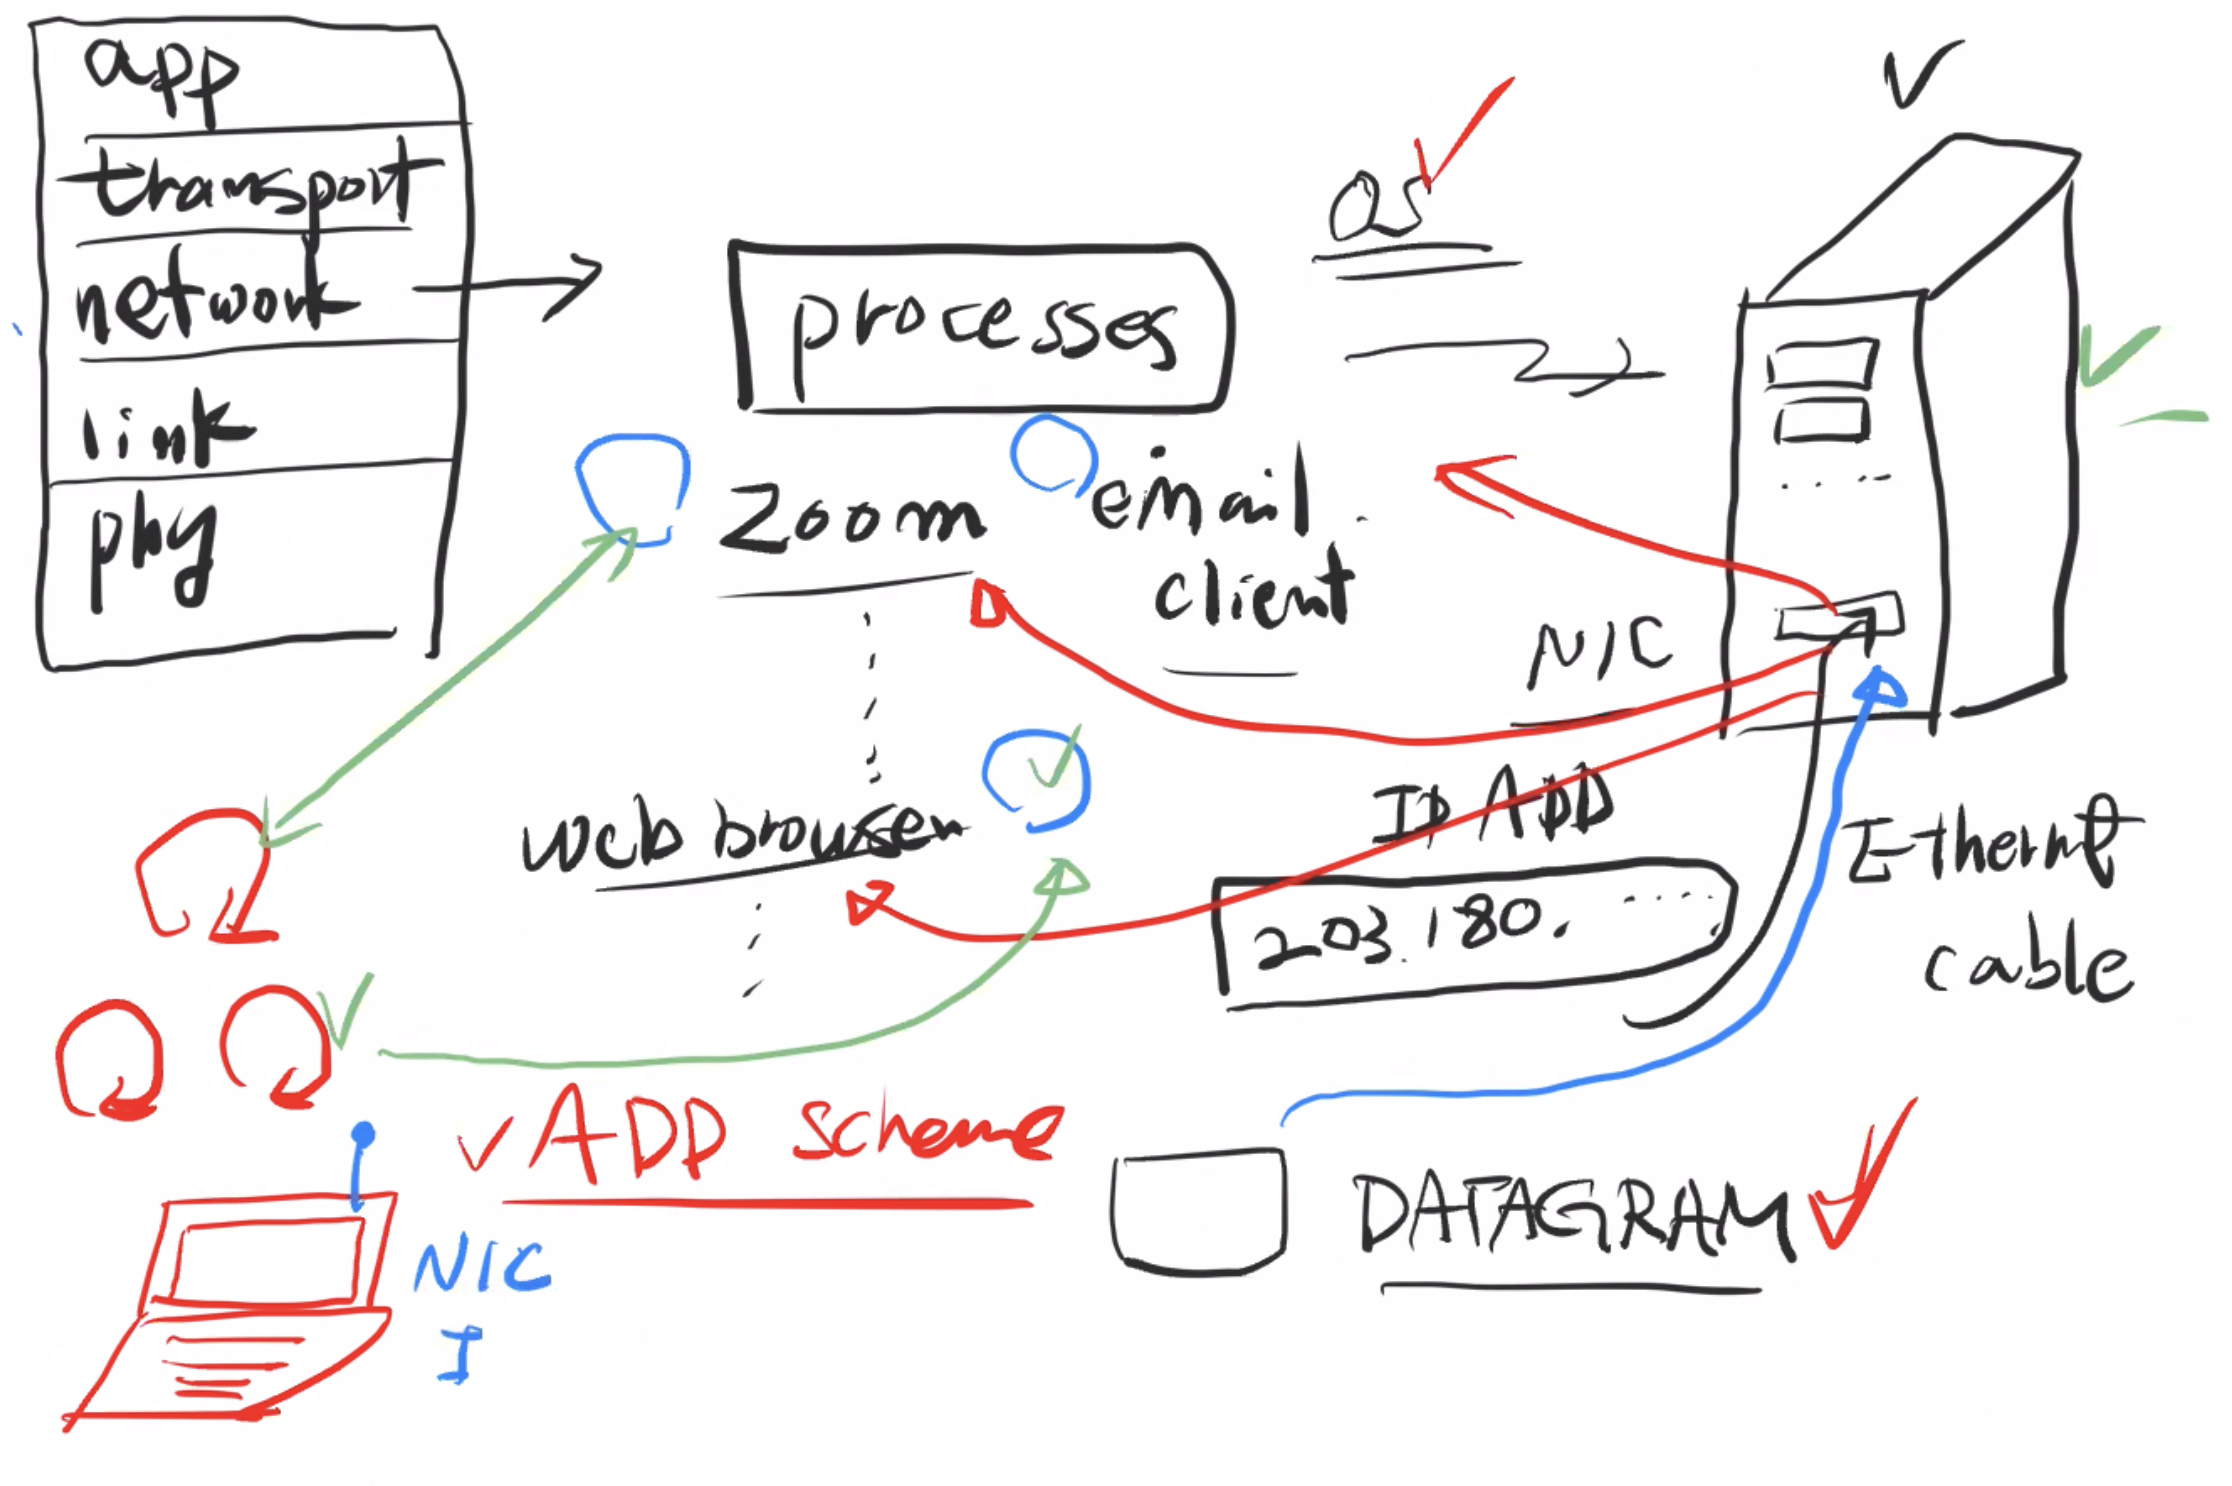 app
transport
network
link
phy
OS
processes
Zoom
email
client
NIC
web browser
IP ADD
203.180. ....
Ethernet
cable
ADD scheme
DATAGRAM
NIC
I